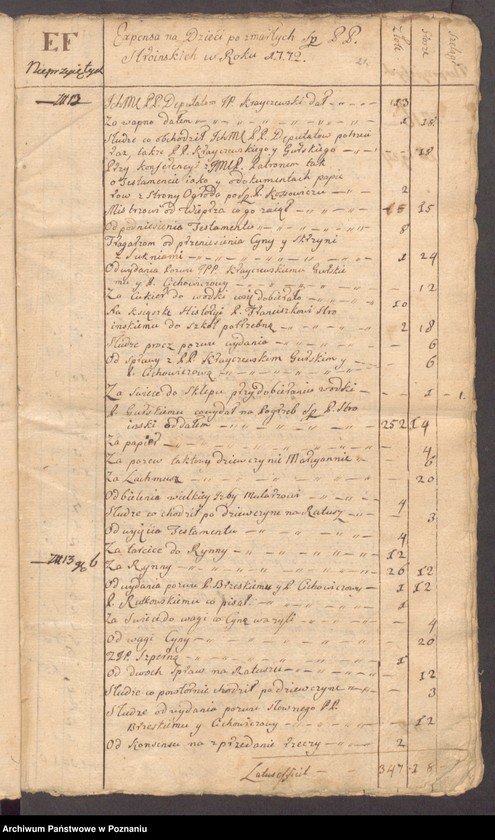 EF
Nieprzyiętych
Expensa na Dzieci po zmarłych Sp P.P.
Stroinskich w Roku 1772.
Złote
Grosze
Szelągi
JchMć P.P. Deputatem JP Krayczewski dał 13
Za wapno dałem 1 18
Słudze co obchodził JchMć P.P. Deputatow
także P.P. Krayczewskiego y Gulskiego 18
Przy konferencyi z JMP. Patronem tak
o Testamencie iako y o dokumentach papie
row z strony Ogroda po Sp P. 2
Mistrzowi od Wieprza co go zaiął 15
Od podniesienia Testamentu 8
Tragarzom od przeniesienia Cyny y Skrzyni
z Sukniami 1 24
Od wydania pozwu JPP Krayczewskiemu Gulskie
mu y P. Cichowiczowy 12
Za Cukier do wodki 10
Na Książkę Historyi P. Franciszkowi Stro
inskiemu do szkoł potrzebną 2 18
Słudze procz pozwu wydania 6
Od sprawy z P.P. Krayczewskim Gulskim y
P. Cichowiczową 6
Za swiece do sklepu przy dobieraniu wodki 1 1.
P. Gulskiemu co wydał na Pogrzeb Sp. P. Stro
inski oddałem 252 14
Za papier 4
Za pozew taktowy dziewczynie Maryannie 6
Za Lachmus 20
Od bielenia wielkiey Izby Mularzowi 4
Słudze co chodził po dziewczynę na Ratusz 3
Od wyięcia Testamentu 4
Za tarcice do Rynny 12
Za Rynny 26 12
Od wydania pozwu P. Brzeskiemu y P. Cichowiczowy 1 12
P. Rutkowskiemu co pisał 1
Za swiece do wagi co Cynę ważyli 4
Od wagi Cyny 20
1
Od dwoch spraw na Ratuszu 12
Słudze co powtornie chodził po dziewczynę 3
Słudze od wydania pozwu Sławnego P.P.
Brzeskiemu y Cichowiczowy 12
Od Konsensu na zprzedanie Rzeczy 2
Latus efficit 347 18
Archiwum Państwowe w Poznaniu